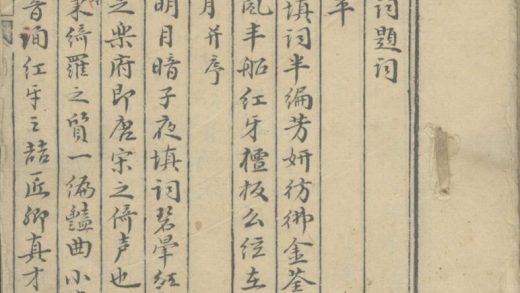 词题词
填词半编芳妍彷彿金荃
风丰船红牙檀板么弦在
月并序
明月暗子夜填词碧晕红
之乐府即唐宋之倚声也
绮罗之質一编豔曲小
音洄红牙之喆匠卿真才